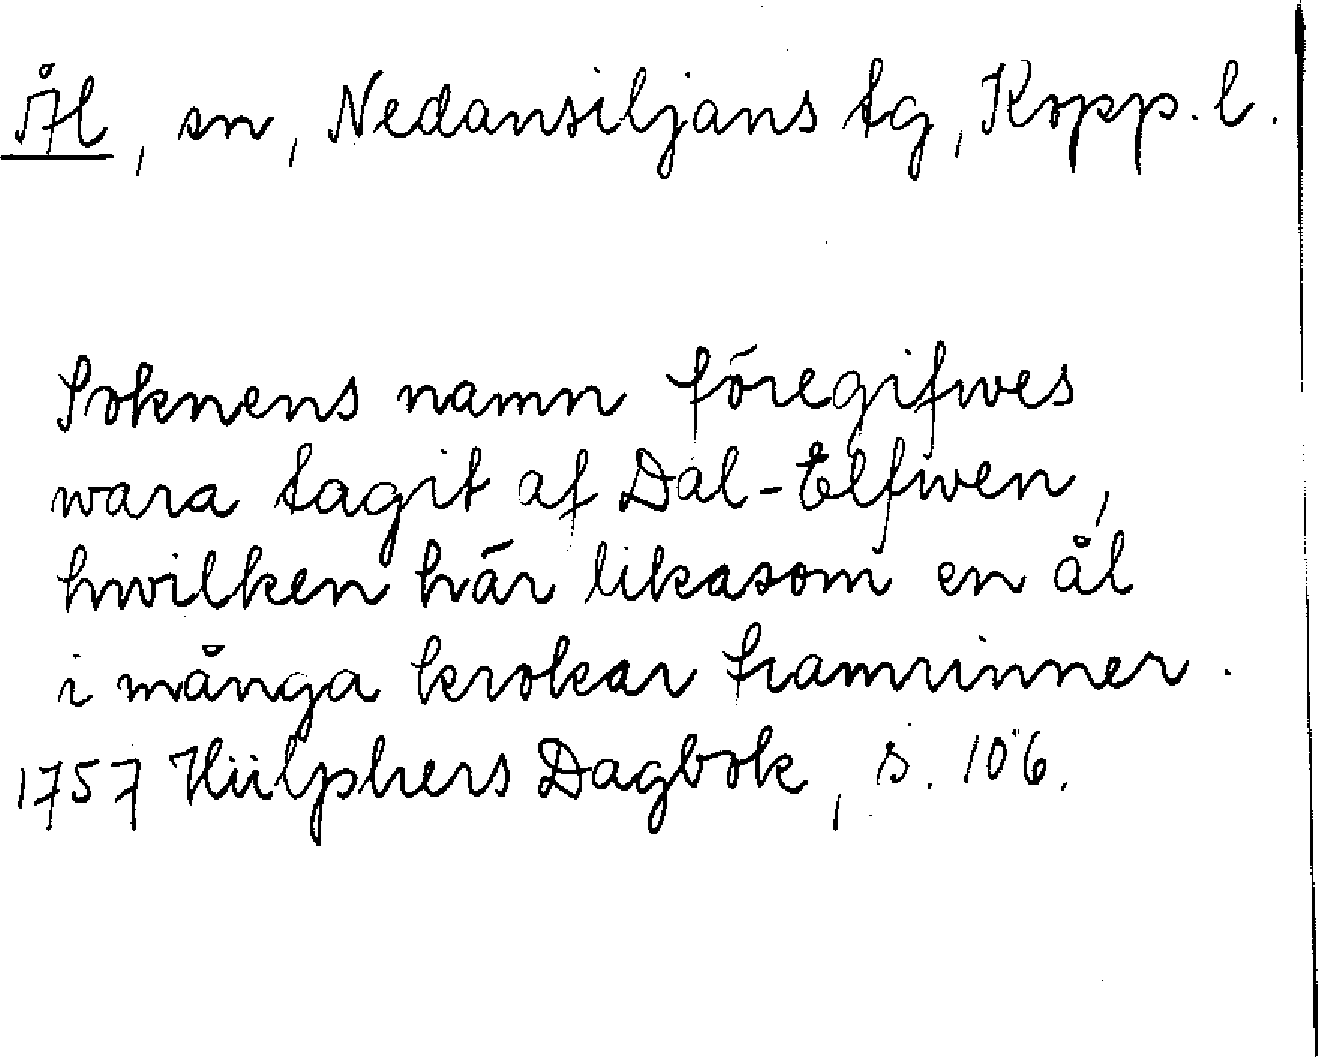 Ål, sn, Nedansiljans tg, Kopp. l.
Soknens namn föregifwes
wara tagit af Dal-Elfwen,
hwilken här likasom en ål
i många krokar framrinner.
1757 Hülphers Dagbok, s. 106.